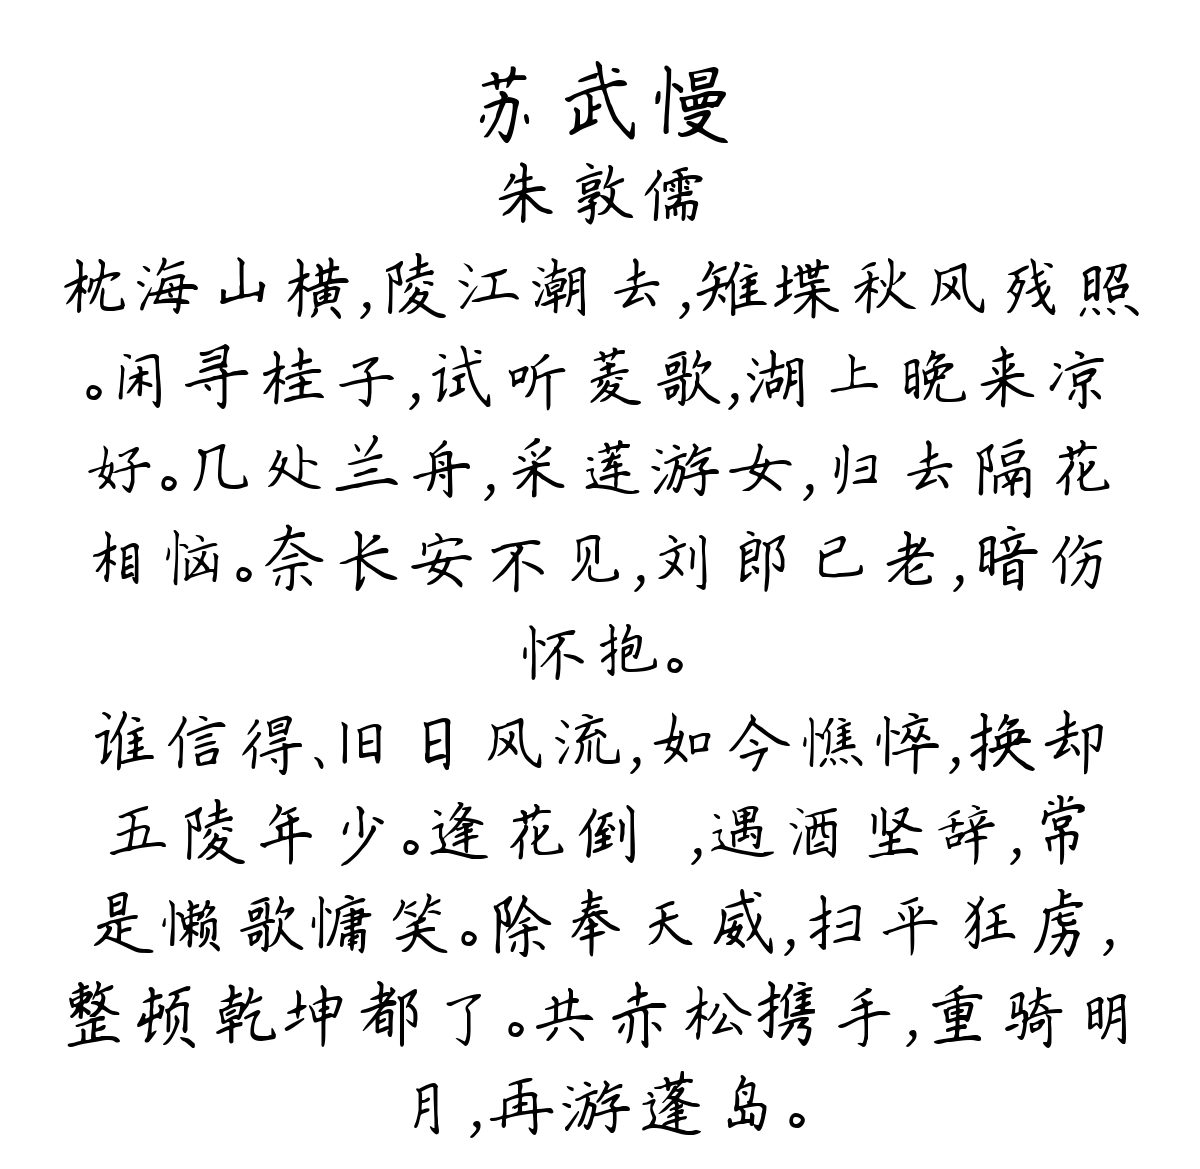 苏武慢
朱敦儒
枕海山横,陵江潮去,雉堞秋风残照
。闲寻桂子,试听菱歌,湖上晚来凉
好。几处兰舟,采莲游女,归去隔花
相恼。奈长安不见,刘郎已老,暗伤
怀抱。
谁信得、旧日风流,如今憔悴,换却
五陵年少。逢花倒 ,遇酒坚辞,常
是懒歌慵笑。除奉天威,扫平狂虏,
整顿乾坤都了。共赤松携手,重骑明
月,再游蓬岛。